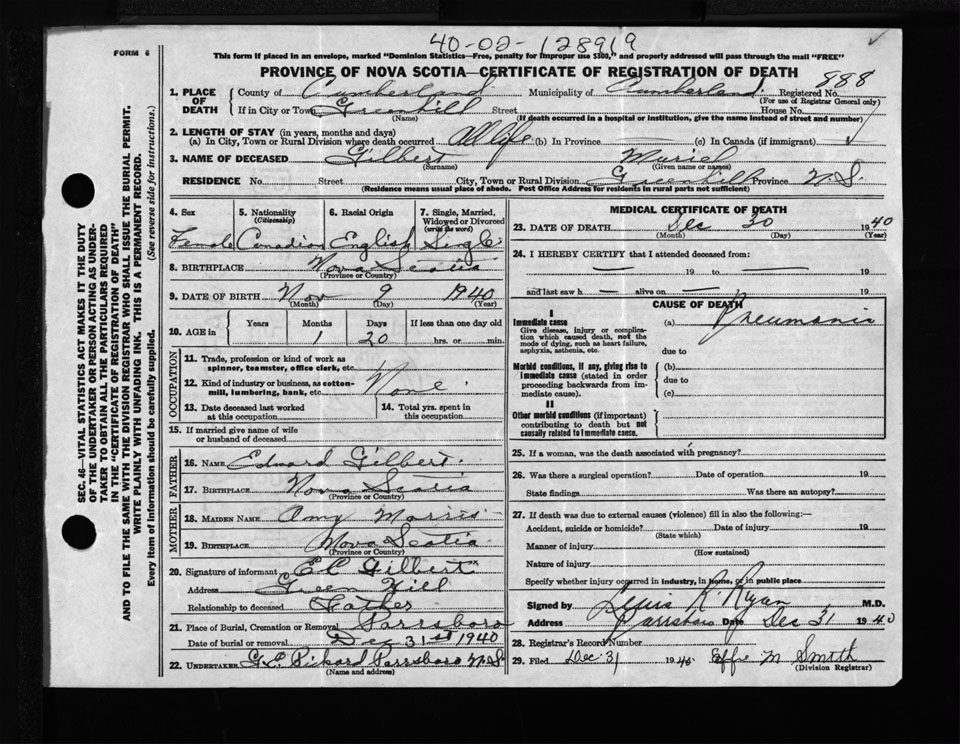 40-02-128919
FORM 6
This form if placed in an envelope, marked "Dominion Statistics—Free, penalty for improper use $300," and properly addressed will pass through the mail "FREE"
PROVINCE OF NOVA SCOTIA—CERTIFICATE OF REGISTRATION OF DEATH
1. PLACE OF DEATH County of Cumberland Municipality of Cumberland Registered No. 888
(For use of Registrar General only)
If in City or Town Greenhill Street House No.
(Name) (If death occurred in a hospital or institution, give the name instead of street and number)
2. LENGTH OF STAY (in years, months and days)
(a) In City, Town or Rural Division where death occurred All life (b) In Province (c) In Canada (if immigrant)
3. NAME OF DECEASED Gilbert Muriel
(Surname) (Given name or names)
RESIDENCE No. Street City, Town or Rural Division Greenhill Province N.S.
(Residence means usual place of abode. Post Office Address for residents in rural parts not sufficient)
SEC. 46—VITAL STATISTICS ACT MAKES IT THE DUTY
OF THE UNDERTAKER OR PERSON ACTING AS UNDER-
TAKER TO OBTAIN ALL THE PARTICULARS REQUIRED
IN THE "CERTIFICATE OF REGISTRATION OF DEATH"
AND TO FILE THE SAME WITH THE DIVISION REGISTRAR WHO SHALL ISSUE THE BURIAL PERMIT.
WRITE PLAINLY WITH UNFADING INK. THIS IS A PERMANENT RECORD.
Every item of Information should be carefully supplied. (See reverse side for instructions.)
4. Sex 5. Nationality (Citizenship) 6. Racial Origin 7. Single, Married, Widowed or Divorced (write the word)
Female Canadian English Single
8. BIRTHPLACE Nova Scotia
(Province or Country)
9. DATE OF BIRTH Nov 9 1940
(Month) (Day) (Year)
10. AGE in Years Months Days If less than one day old
1 20 hrs. or min.
OCCUPATION
11. Trade, profession or kind of work as spinner, teamster, office clerk, etc.
12. Kind of industry or business, as cotton-mill, lumbering, bank, etc. None
13. Date deceased last worked at this occupation
14. Total yrs. spent in this occupation
15. If married give name of wife or husband of deceased
FATHER
16. NAME Edward Gilbert
17. BIRTHPLACE Nova Scotia
(Province or Country)
MOTHER
18. MAIDEN NAME Amy Morris
19. BIRTHPLACE Nova Scotia
(Province or Country)
20. Signature of informant E C Gilbert
Address Green Hill
Relationship to deceased Father
21. Place of Burial, Cremation or Removal Parrsboro
Date of burial or removal Dec 31st 1940
22. UNDERTAKER G.E. Rickard Parrsboro N.S.
(Name and address)
MEDICAL CERTIFICATE OF DEATH
23. DATE OF DEATH Dec 30 1940
(Month) (Day) (Year)
24. I HEREBY CERTIFY that I attended deceased from:
— 19 to — 19
and last saw h — alive on — 19
CAUSE OF DEATH
I
Immediate cause (a) Pneumonia
Give disease, injury or complica-
tion which caused death, not the
mode of dying, such as heart failure,
asphyxia, asthenia, etc. due to
Morbid conditions, if any, giving rise to (b)
immediate cause (stated in order due to
proceeding backwards from im-
mediate cause). (c)
II
Other morbid conditions (if important)
contributing to death but not
causally related to immediate cause.
25. If a woman, was the death associated with pregnancy?
26. Was there a surgical operation? Date of operation 19
State findings Was there an autopsy?
27. If death was due to external causes (violence) fill in also the following:—
Accident, suicide or homicide? Date of injury 19
(State which)
Manner of injury
(How sustained)
Nature of injury
Specify whether injury occurred in industry, in home, or in public place
Signed by R. Ryan M.D.
Address Parrsboro Date Dec 31 1940
28. Registrar's Record Number
29. Filed Dec 31 1940 Effie M Smith
(Division Registrar)